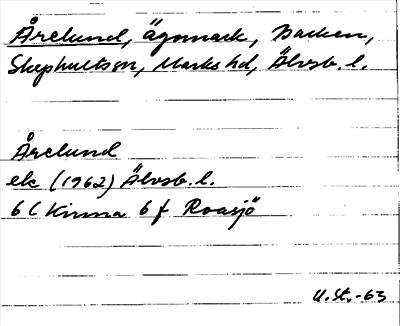 Årelund, ägomark, Backen,
Skephults sn, Marks hd, Älvsb. l.
Årelund
ek (1962) Älvsb. l.
6 C Kinna 6 f Roasjö
U. St. -63